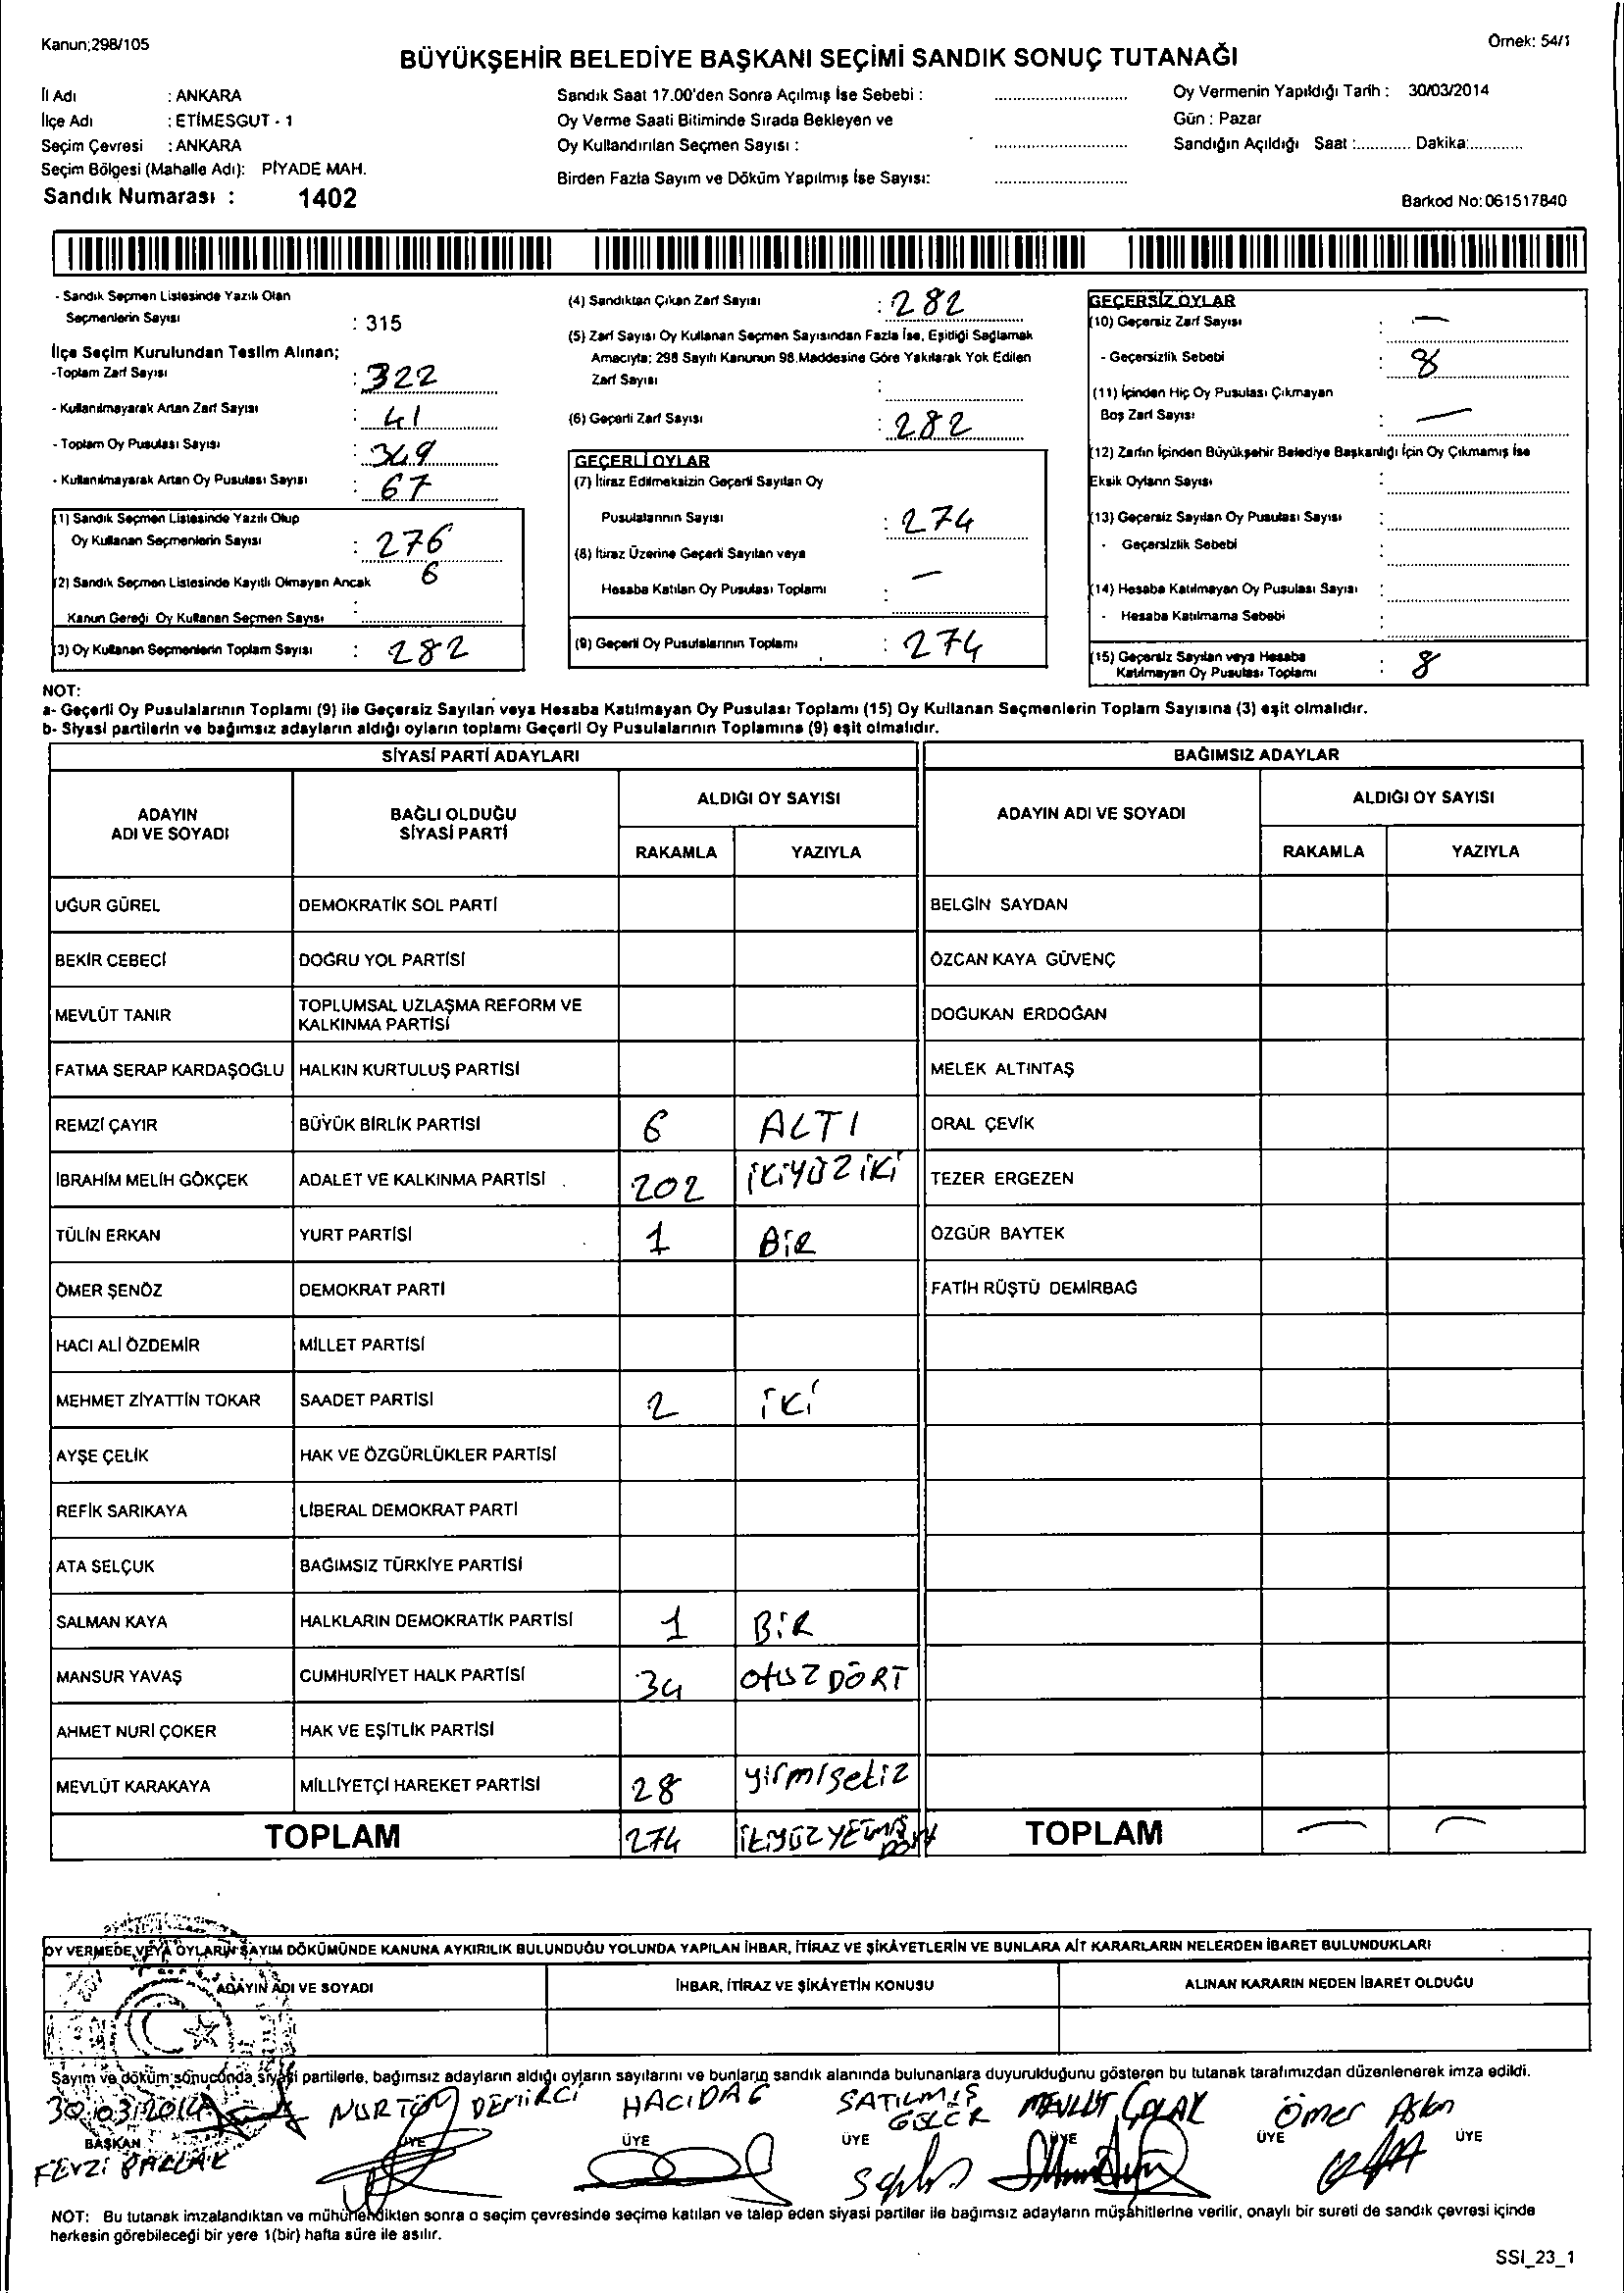 Kanun;298/105
Örnek: 54/1
BÜYÜKŞEHİR BELEDİYE BAŞKANI SEÇİMİ SANDIK SONUÇ TUTANAĞI
İl Adı : ANKARA
İlçe Adı : ETİMESGUT - 1
Seçim Çevresi : ANKARA
Seçim Bölgesi (Mahalle Adı): PİYADE MAH.
Sandık Numarası : 1402
Sandık Saat 17.00'den Sonra Açılmış İse Sebebi :
Oy Verme Saati Bitiminde Sırada Bekleyen ve
Oy Kullandırılan Seçmen Sayısı :
Birden Fazla Sayım ve Döküm Yapılmış İse Sayısı:
Oy Vermenin Yapıldığı Tarih : 30/03/2014
Gün : Pazar
Sandığın Açıldığı Saat :............ Dakika:............
Barkod No:061517840
- Sandık Seçmen Listesinde Yazılı Olan
Seçmenlerin Sayısı : 315
İlçe Seçim Kurulundan Teslim Alınan;
-Toplam Zarf Sayısı : 322
- Kullanılmayarak Artan Zarf Sayısı : 41
- Toplam Oy Pusulası Sayısı : 349
- Kullanılmayarak Artan Oy Pusulası Sayısı : 67
(1) Sandık Seçmen Listesinde Yazılı Olup
Oy Kullanan Seçmenlerin Sayısı : 276
(2) Sandık Seçmen Listesinde Kayıtlı Olmayan Ancak 6
Kanun Gereği Oy Kullanan Seçmen Sayısı :
(3) Oy Kullanan Seçmenlerin Toplam Sayısı : 282
(4) Sandıktan Çıkan Zarf Sayısı : 282
(5) Zarf Sayısı Oy Kullanan Seçmen Sayısından Fazla İse, Eşitliği Sağlamak
Amacıyla; 298 Sayılı Kanunun 98.Maddesine Göre Yakılarak Yok Edilen
Zarf Sayısı :
(6) Geçerli Zarf Sayısı : 282
GEÇERLİ OYLAR
(7) İtiraz Edilmeksizin Geçerli Sayılan Oy
Pusulalarının Sayısı : 274
(8) İtiraz Üzerine Geçerli Sayılan veya
Hesaba Katılan Oy Pusulası Toplamı : —
(9) Geçerli Oy Pusulalarının Toplamı : 274
GEÇERSİZ OYLAR
(10) Geçersiz Zarf Sayısı : —
- Geçersizlik Sebebi : 8
(11) İçinden Hiç Oy Pusulası Çıkmayan
Boş Zarf Sayısı : —
(12) Zarfın İçinden Büyükşehir Belediye Başkanlığı İçin Oy Çıkmamış İse
Eksik Oyların Sayısı :
(13) Geçersiz Sayılan Oy Pusulası Sayısı :
- Geçersizlik Sebebi :
(14) Hesaba Katılmayan Oy Pusulası Sayısı :
- Hesaba Katılmama Sebebi :
(15) Geçersiz Sayılan veya Hesaba
Katılmayan Oy Pusulası Toplamı : 8
NOT:
a- Geçerli Oy Pusulalarının Toplamı (9) ile Geçersiz Sayılan veya Hesaba Katılmayan Oy Pusulası Toplamı (15) Oy Kullanan Seçmenlerin Toplam Sayısına (3) eşit olmalıdır.
b- Siyasi partilerin ve bağımsız adayların aldığı oyların toplamı Geçerli Oy Pusulalarının Toplamına (9) eşit olmalıdır.
SİYASİ PARTİ ADAYLARI
BAĞIMSIZ ADAYLAR
ADAYIN ADI VE SOYADI
BAĞLI OLDUĞU SİYASİ PARTİ
ALDIĞI OY SAYISI
RAKAMLA YAZIYLA
ADAYIN ADI VE SOYADI
ALDIĞI OY SAYISI
RAKAMLA YAZIYLA
UĞUR GÜREL DEMOKRATİK SOL PARTİ BELGİN SAYDAN
BEKİR CEBECİ DOĞRU YOL PARTİSİ ÖZCAN KAYA GÜVENÇ
MEVLÜT TANIR TOPLUMSAL UZLAŞMA REFORM VE KALKINMA PARTİSİ DOĞUKAN ERDOĞAN
FATMA SERAP KARDAŞOĞLU HALKIN KURTULUŞ PARTİSİ MELEK ALTINTAŞ
REMZİ ÇAYIR BÜYÜK BİRLİK PARTİSİ 6 ALTI ORAL ÇEVİK
İBRAHİM MELİH GÖKÇEK ADALET VE KALKINMA PARTİSİ 202 İKİYÜZ İKİ TEZER ERGEZEN
TÜLİN ERKAN YURT PARTİSİ 1 BİR ÖZGÜR BAYTEK
ÖMER ŞENÖZ DEMOKRAT PARTİ FATİH RÜŞTÜ DEMİRBAĞ
HACI ALİ ÖZDEMİR MİLLET PARTİSİ
MEHMET ZİYATTİN TOKAR SAADET PARTİSİ 2 İKİ
AYŞE ÇELİK HAK VE ÖZGÜRLÜKLER PARTİSİ
REFİK SARIKAYA LİBERAL DEMOKRAT PARTİ
ATA SELÇUK BAĞIMSIZ TÜRKİYE PARTİSİ
SALMAN KAYA HALKLARIN DEMOKRATİK PARTİSİ 1 BİR
MANSUR YAVAŞ CUMHURİYET HALK PARTİSİ 34 otuz DÖRT
AHMET NURİ ÇOKER HAK VE EŞİTLİK PARTİSİ
MEVLÜT KARAKAYA MİLLİYETÇİ HAREKET PARTİSİ 28 yirmisekiz
TOPLAM 274 İKİYÜZ YETMİŞ DÖRT TOPLAM — —
OY VERMEDE VEYA OYLARIN SAYIM DÖKÜMÜNDE KANUNA AYKIRILIK BULUNDUĞU YOLUNDA YAPILAN İHBAR, İTİRAZ VE ŞİKÂYETLERİN VE BUNLARA AİT KARARLARIN NELERDEN İBARET BULUNDUKLARI
ADAYIN ADI VE SOYADI İHBAR, İTİRAZ VE ŞİKÂYETİN KONUSU ALINAN KARARIN NEDEN İBARET OLDUĞU
Sayım ve döküm sonucunda siyasi partilerle, bağımsız adayların aldığı oyların sayılarını ve bunların sandık alanında bulunanlara duyurulduğunu gösteren bu tutanak tarafımızdan düzenlenerek imza edildi.
30.03.2014 DEMİRCİ HACI DAĞ SATILMIŞ GÜLER MEVLÜT ÇOLAK Ömer Aslan
BAŞKAN ÜYE ÜYE ÜYE ÜYE ÜYE ÜYE
FEVZİ PARLAK
NOT: Bu tutanak imzalandıktan ve mühürlendikten sonra o seçim çevresinde seçime katılan ve talep eden siyasi partiler ile bağımsız adayların müşahitlerine verilir, onaylı bir sureti de sandık çevresi içinde
herkesin görebileceği bir yere 1(bir) hafta süre ile asılır.
SSI_23_1